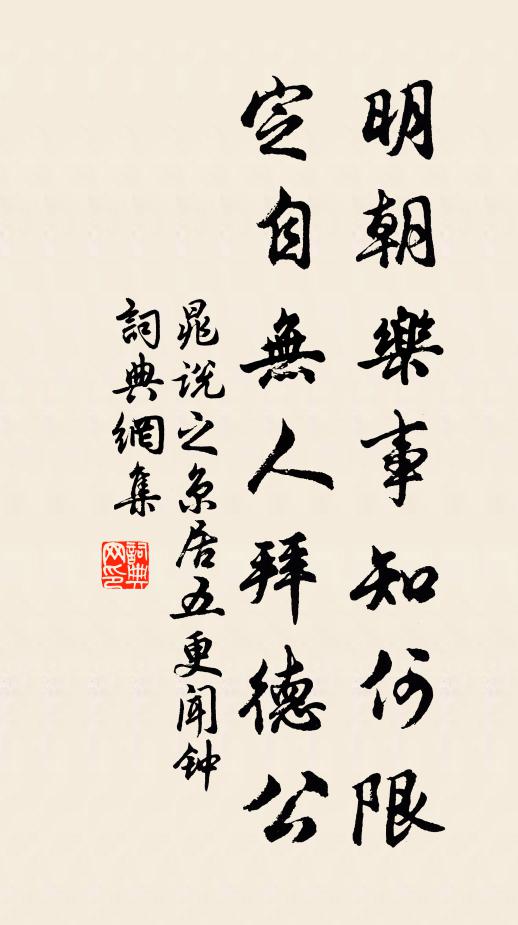 明朝樂事知何限
定自無人拜德公
晁說之京居五更聞钟
詞典網集
詞典网印